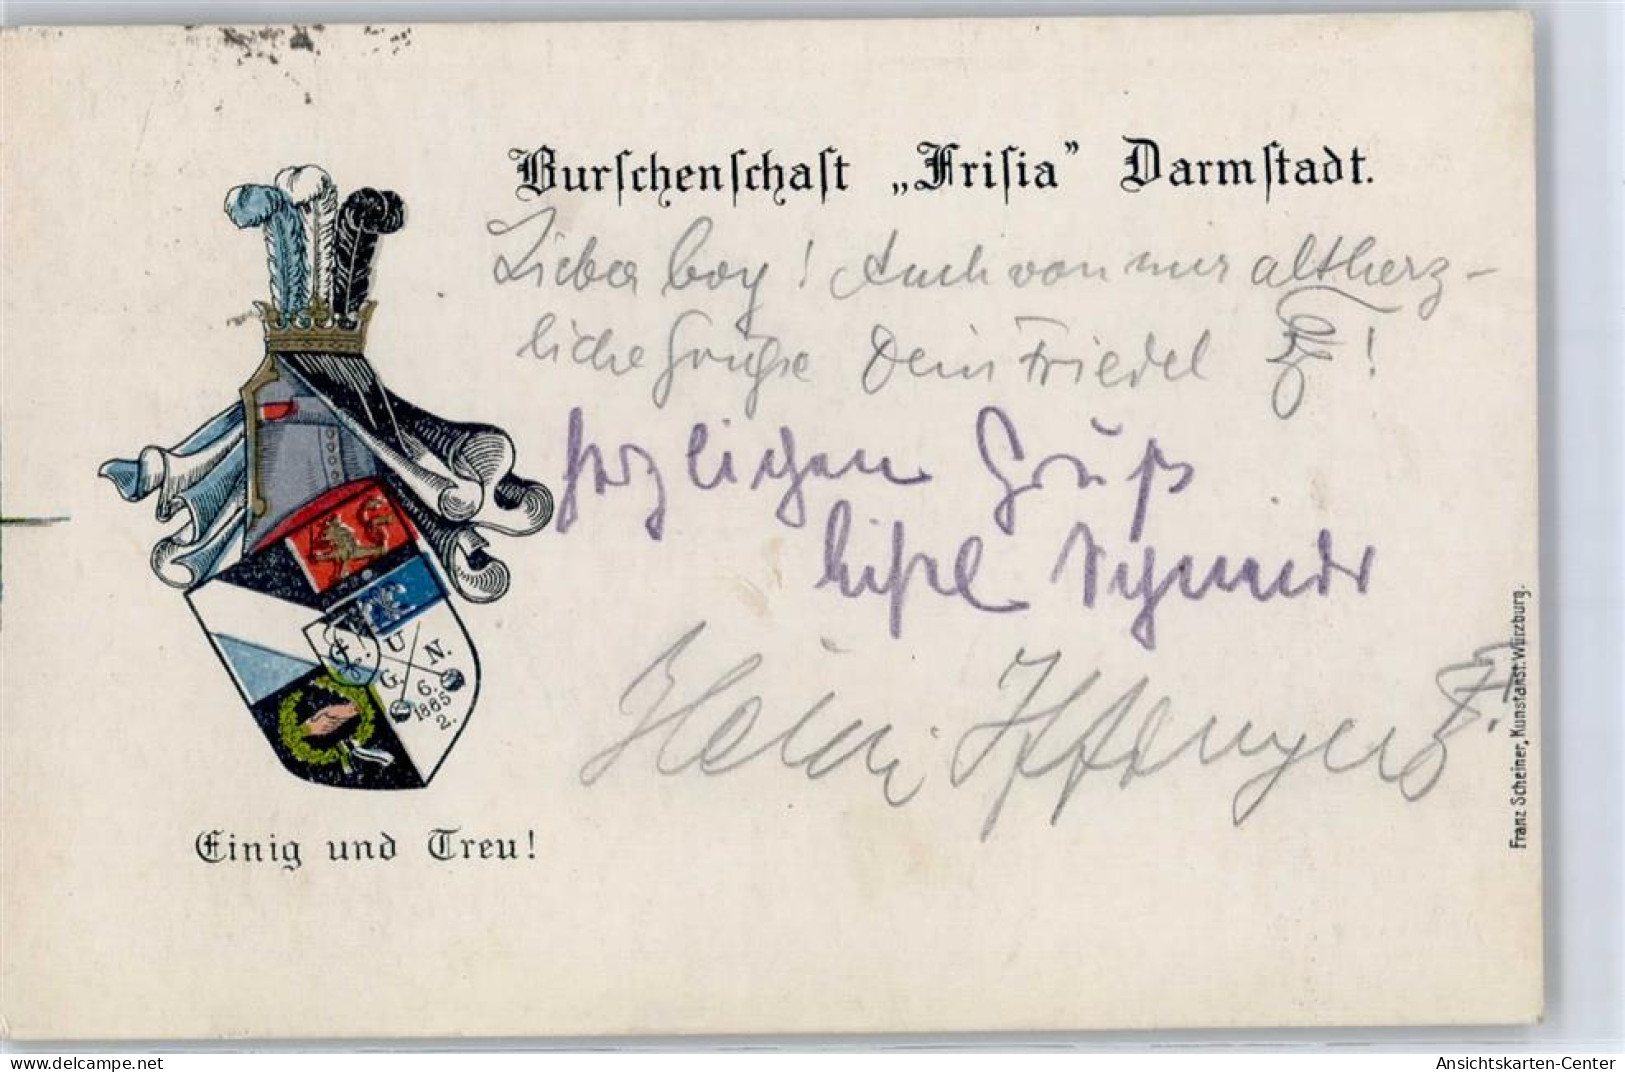 Burschenschaft „Frisia” Darmstadt.
Lieber boy! Auch von mir altherz-
liche Grüße Dein Friedel !
herzlichen Gruß
Schneider
Hein.
F.
U N.
G.
6.
1885
2.
Einig und Treu!
Franz Scheiner, Kunstanst. Würzburg.
www.oldthing.de
Ansichtskarten-Center